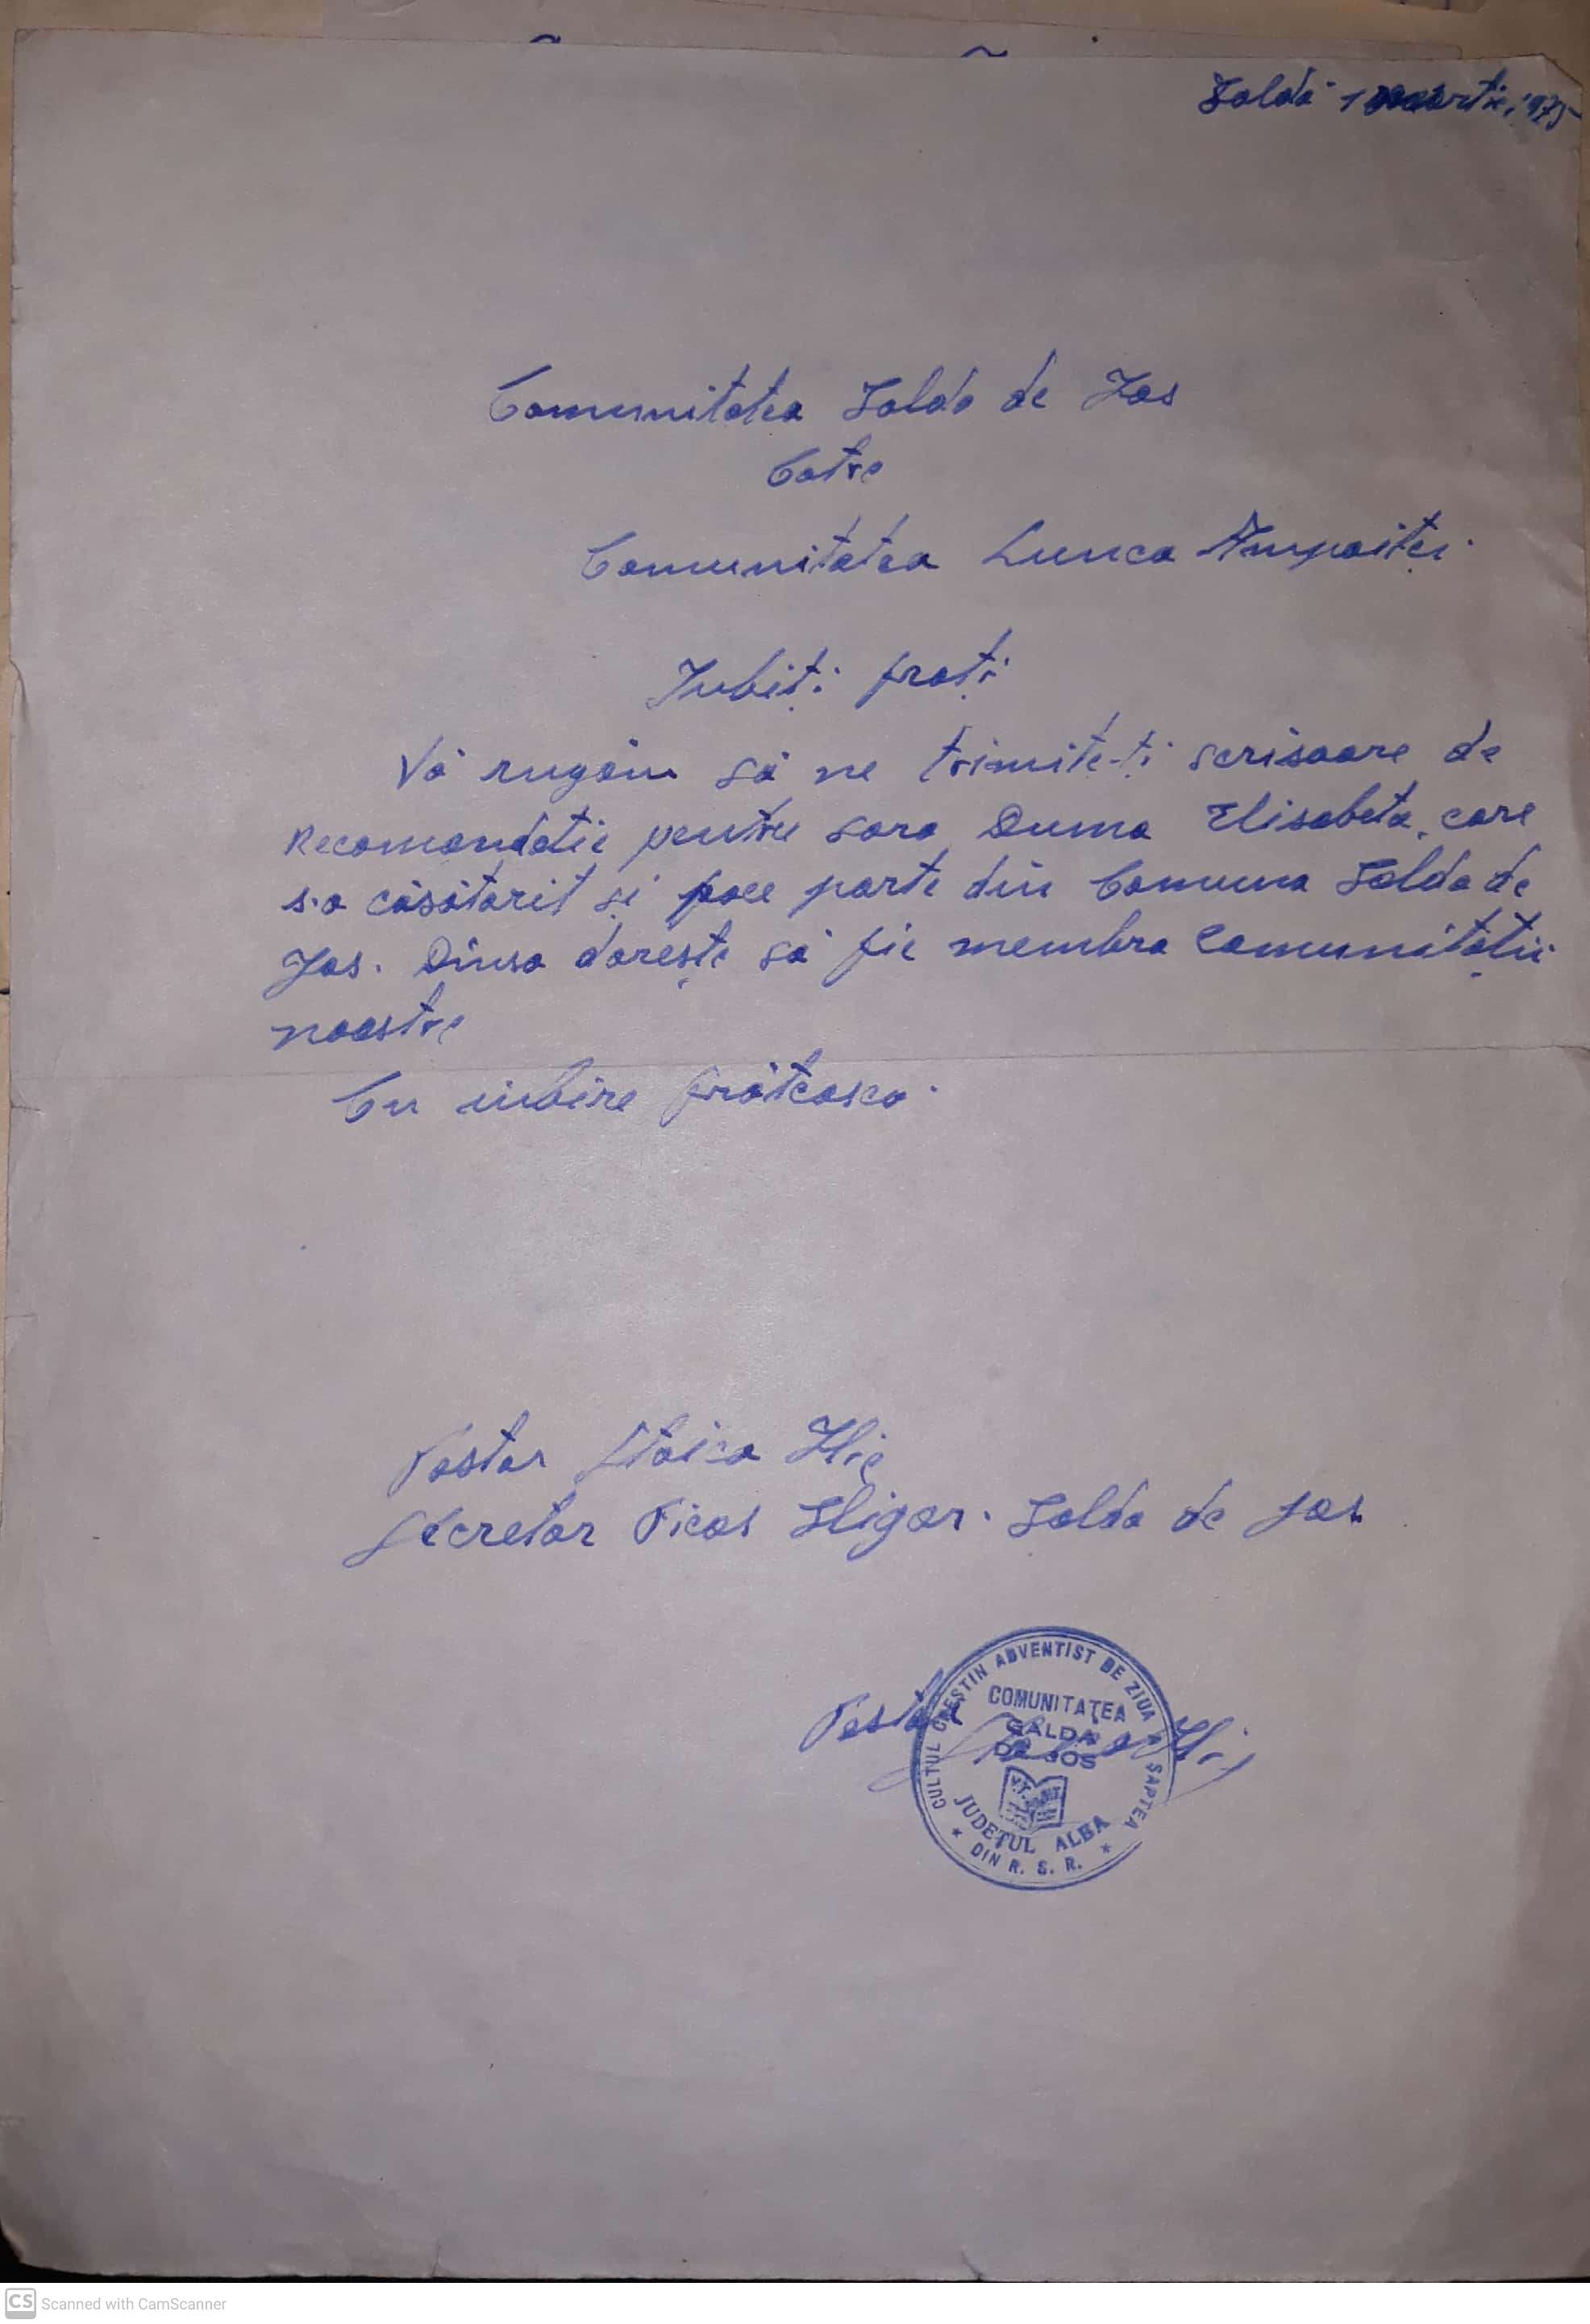 Galda 1 martie, 1975
Comunitatea Galda de Jos
Catre
Comunitatea Lunca Ampoiței
Iubiți frați
Vă rugăm să ne trimite-ți scrisoare de
Recomandatie pentru sora Duma Elisabeta, care
s-a căsătorit și face parte din Comuna Galda de
Jos. Dînsa dorește să fie membra Comunității
noastre
Cu iubire frățeasca.
Pastor Stoica Ilie
Secretar Picos Gligor. Galda de Jos
Pastor Stoica Ilie
CULTUL CREȘTIN ADVENTIST DE ZIUA A ȘAPTEA
COMUNITAȚEA
GALDA
DE JOS
V.T.
JUDEȚUL ALBA
* DIN R. S. R. *
CS Scanned with CamScanner